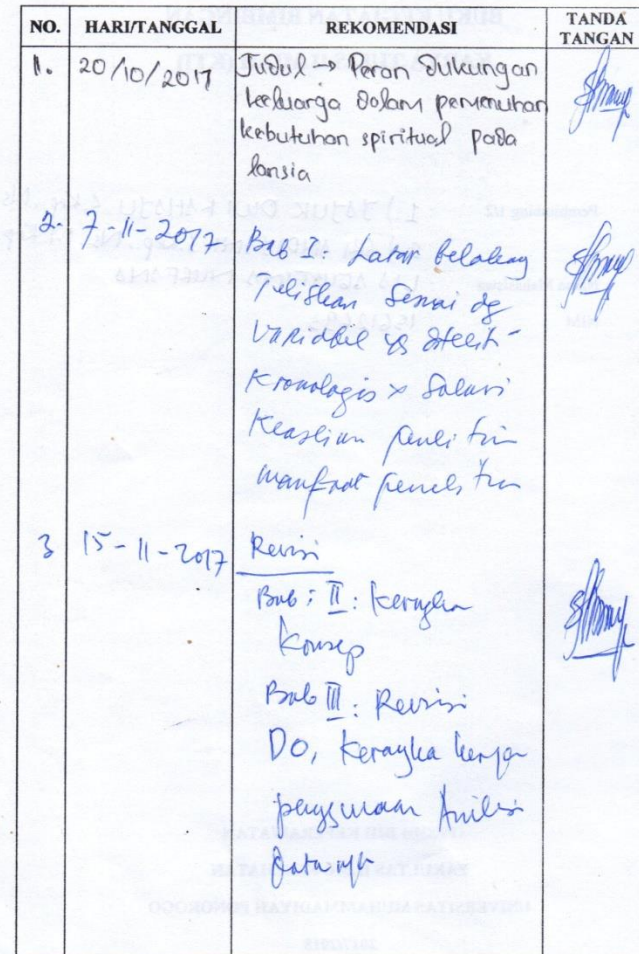 NO. HARI/TANGGAL REKOMENDASI TANDA TANGAN
1. 20/10/2017 Judul → Peran dukungan
keluarga dalam pemenuhan
kebutuhan spiritual pada
lansia
2. 7-11-2017 Bab I. Latar belakang
tuliskan sesuai dg
variabel yg diteliti
Kronologis Solusi
Keaslian penelitian
manfaat penelitian
3 15-11-2017 Revisi
Bab: II: Kerangka
Konsep
Bab III: Revisi
DO, Kerangka kerja
penggunaan Analisa
datanya